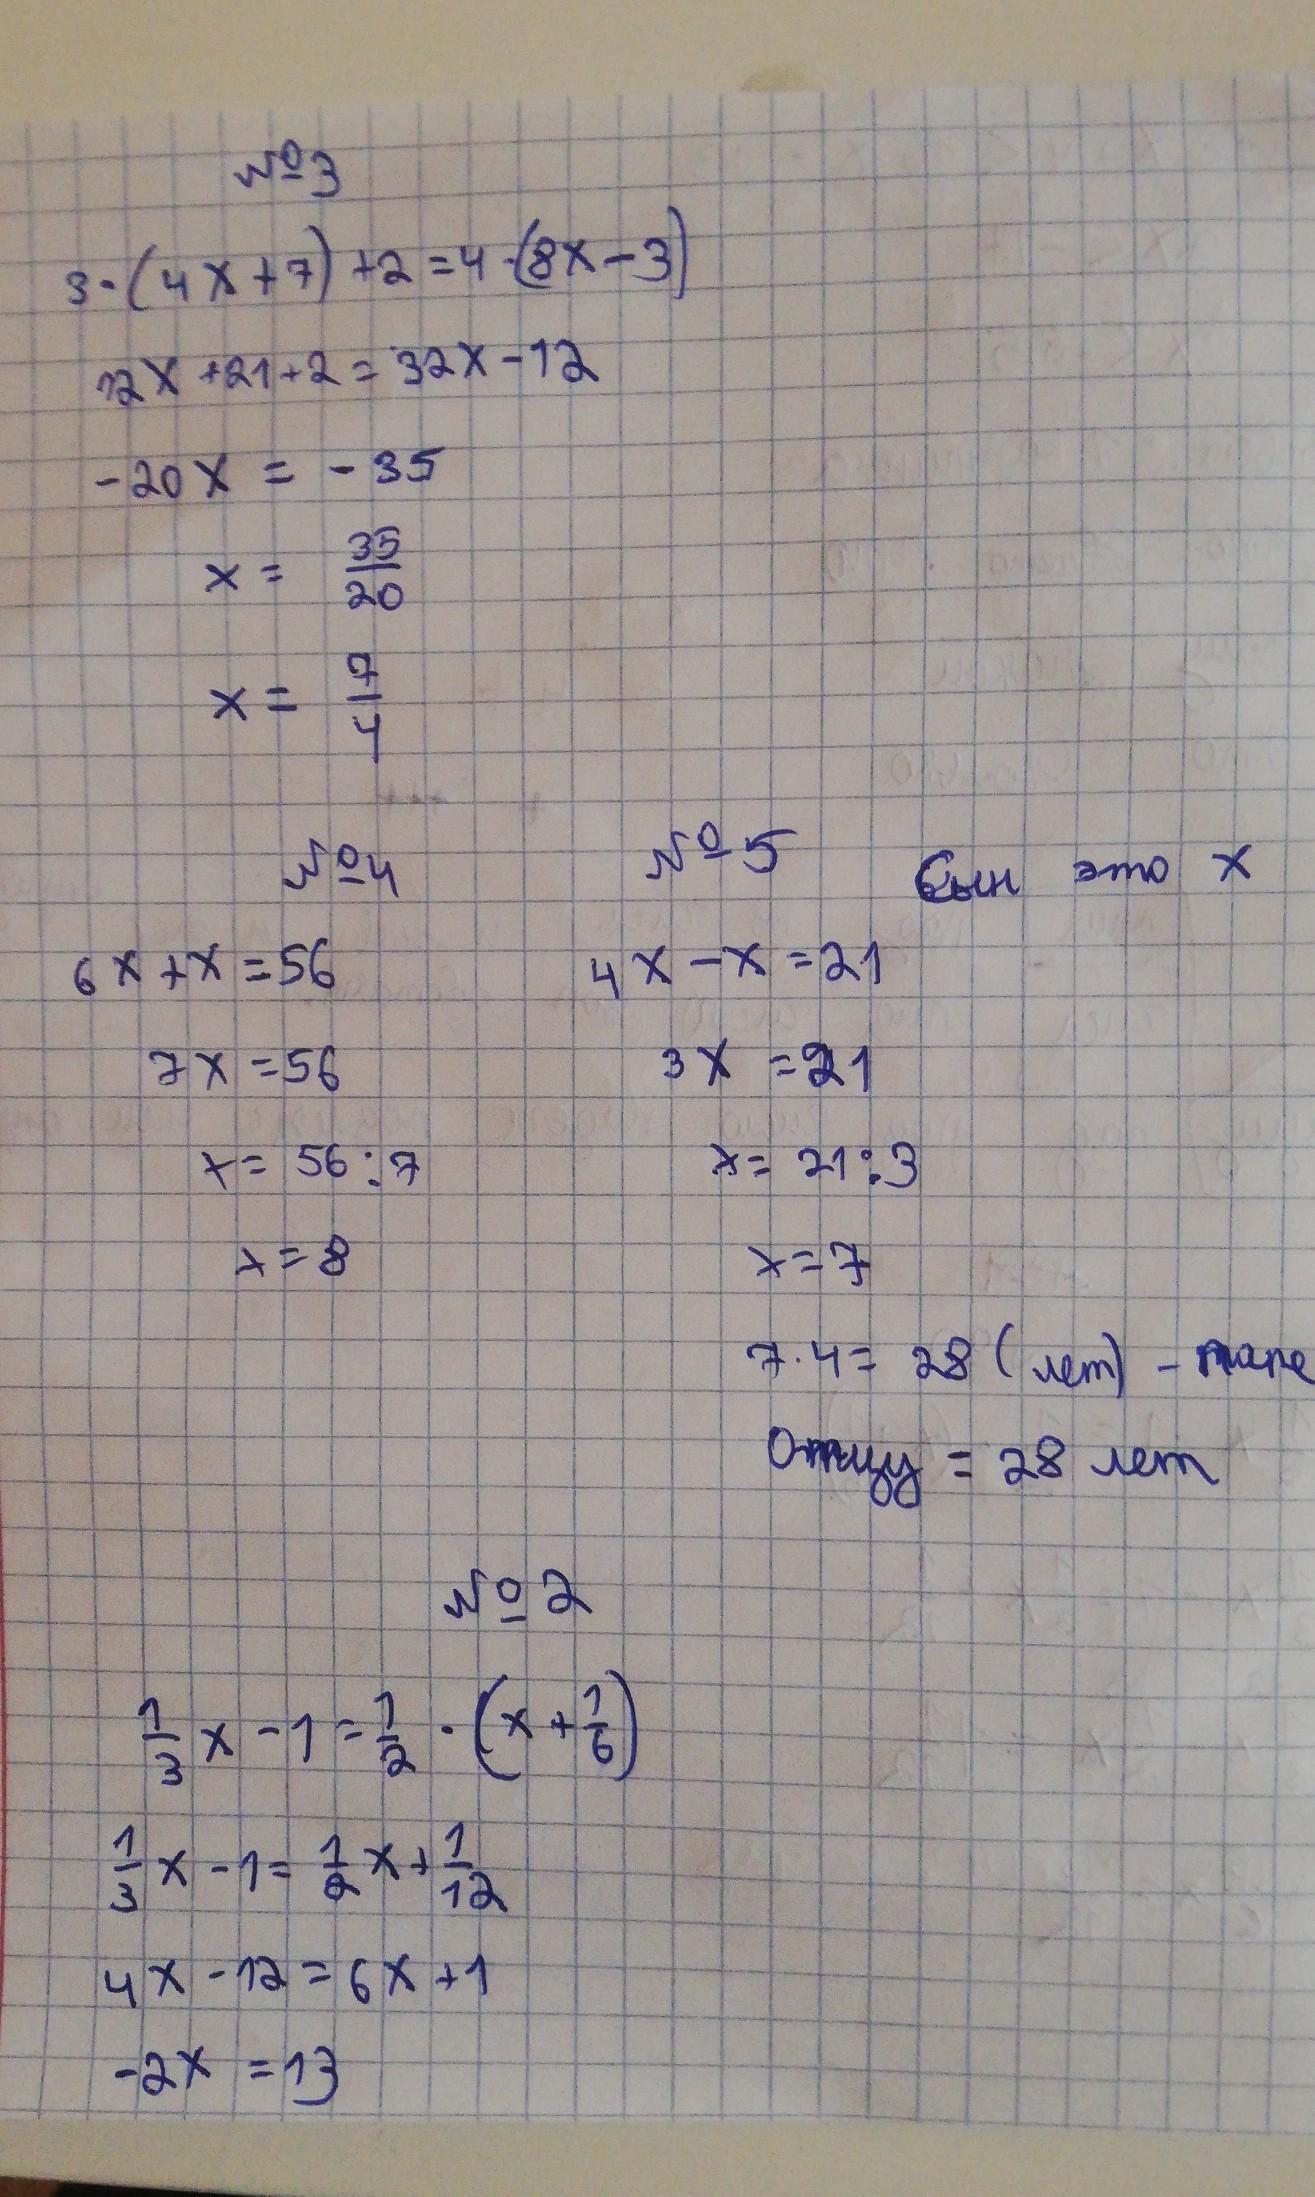 №3
3·(4x+7)+2=4·(8x-3)
12x+21+2=32x-12
-20x = -35
x = 35/20
x = 7/4
№4
6x+x=56
7x=56
x= 56:7
x=8
№5 Сын это x
4x-x=21
3x=21
x= 21:3
x=7
7·4= 28 (лет) - папе
Отцу = 28 лет
№2
1/3x-1=1/2·(x+1/6)
1/3x-1=1/2x+1/12
4x-12=6x+1
-2x=13